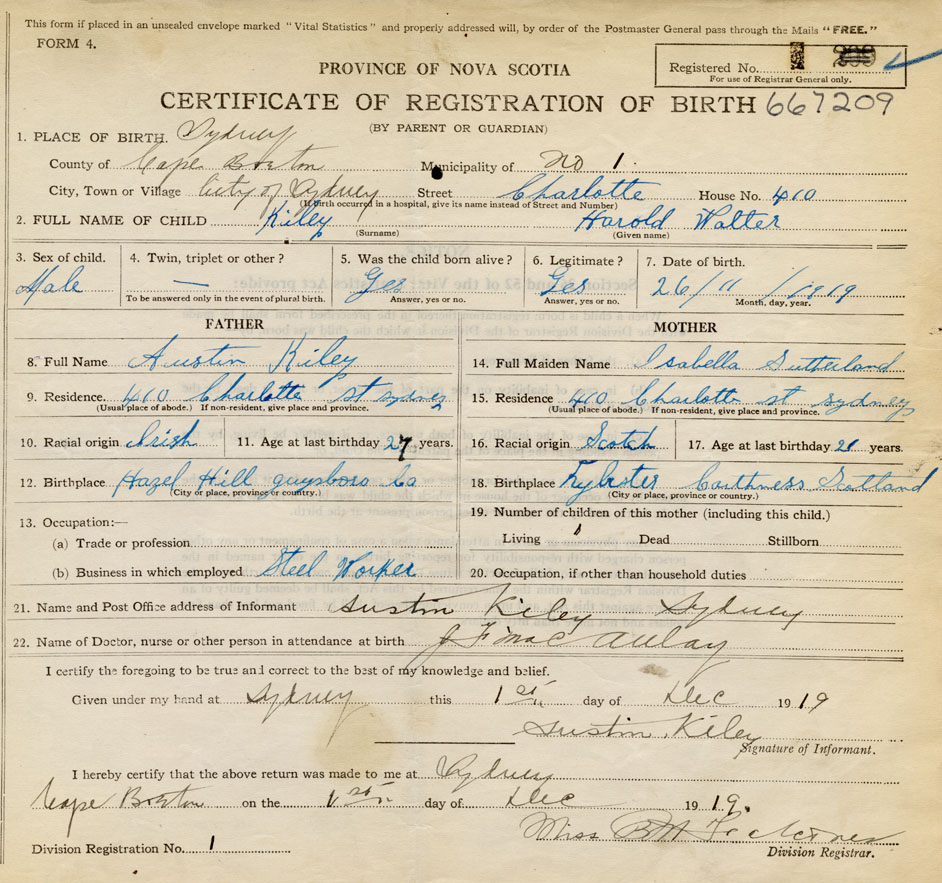 This form if placed in an unsealed envelope marked "Vital Statistics" and properly addressed will, by order of the Postmaster General pass through the Mails "FREE."
FORM 4.
Registered No.
For use of Registrar General only.
PROVINCE OF NOVA SCOTIA
CERTIFICATE OF REGISTRATION OF BIRTH 667209
(BY PARENT OR GUARDIAN)
1. PLACE OF BIRTH. Sydney
County of Cape Breton Municipality of No 1.
City, Town or Village City of Sydney Street Charlotte House No. 410
(If birth occurred in a hospital, give its name instead of Street and Number)
2. FULL NAME OF CHILD Kiley Harold Walter
(Surname) (Given name)
3. Sex of child. 4. Twin, triplet or other? 5. Was the child born alive? 6. Legitimate? 7. Date of birth.
Male — Yes Yes 26/11/1919
To be answered only in the event of plural birth. Answer, yes or no. Answer, yes or no. Month, day, year.
FATHER MOTHER
8. Full Name Austin Kiley 14. Full Maiden Name Isabella Sutherland
9. Residence. 410 Charlotte st sydney 15. Residence 410 Charlotte st sydney
(Usual place of abode.) If non-resident, give place and province. (Usual place of abode.) If non-resident, give place and province.
10. Racial origin Irish 11. Age at last birthday 27 years. 16. Racial origin Scotch 17. Age at last birthday 21 years.
12. Birthplace Hazel Hill guysboro Co 18. Birthplace Caithness Scotland
(City or place, province or country.) (City or place, province or country.)
19. Number of children of this mother (including this child.)
13. Occupation:—
Living 1 Dead Stillborn
(a) Trade or profession
(b) Business in which employed Steel Worker 20. Occupation, if other than household duties
21. Name and Post Office address of Informant Austin Kiley Sydney
22. Name of Doctor, nurse or other person in attendance at birth J F Mac Aulay
I certify the foregoing to be true and correct to the best of my knowledge and belief.
Given under my hand at Sydney this 1st day of Dec 1919
Austin Kiley
Signature of Informant.
I hereby certify that the above return was made to me at Sydney
Cape Breton on the 1st day of Dec 1919.
Miss
Division Registration No. 1 Division Registrar.